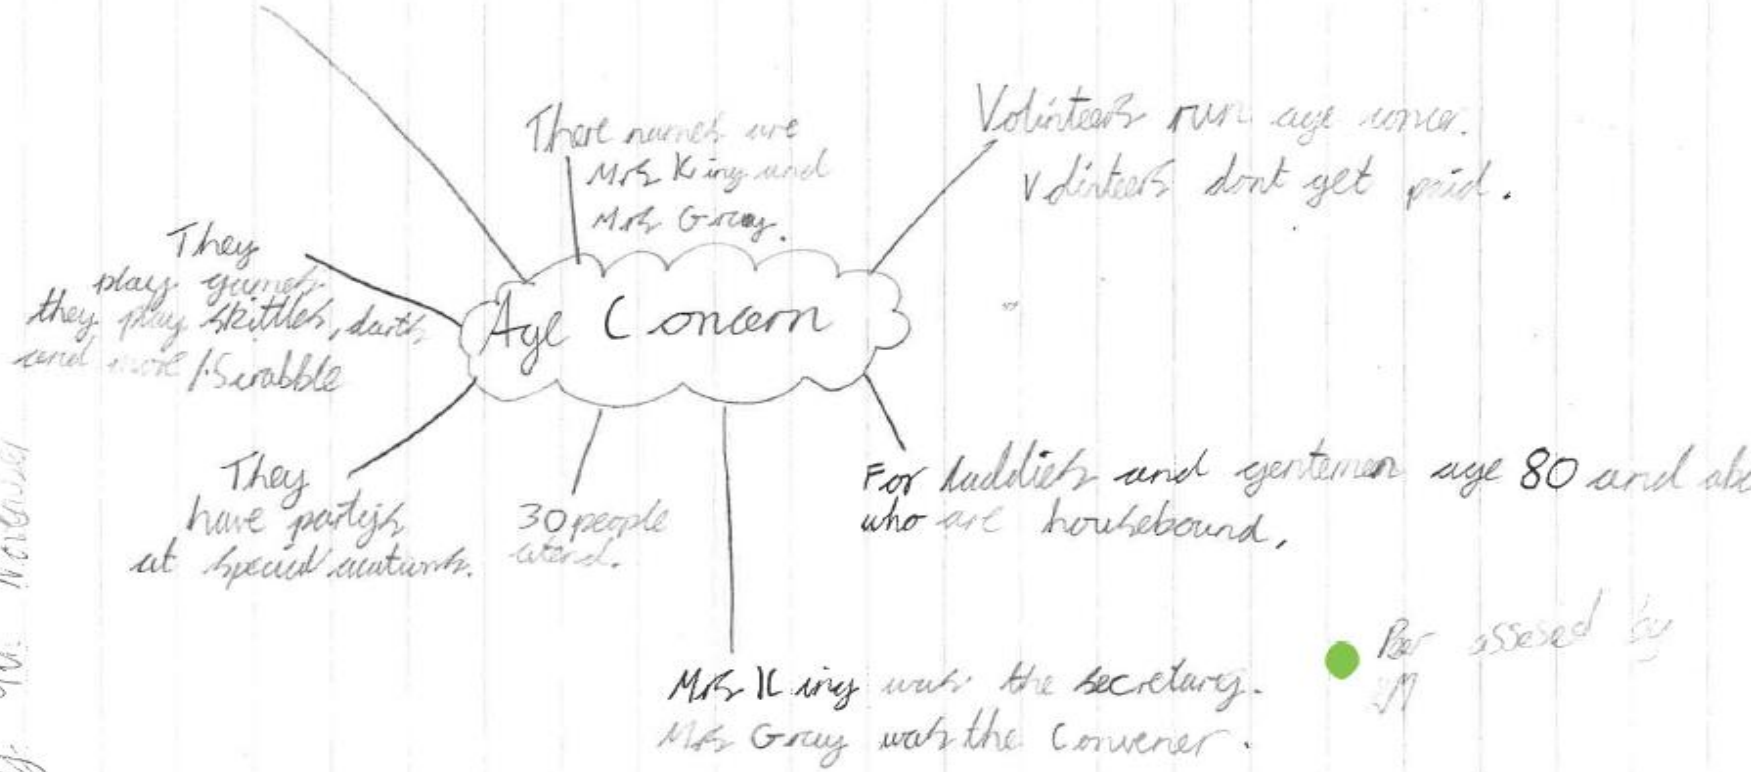 There names are
Mrs King and
Mrs Gray.
Volinteers run age concer.
Volinteers dont get paid.
They
play games
they play skittles, darts
and more /.Scrabble
Age Concern
They
have partys
at special
30 people
atend.
For laddies and gentemen age 80 and abo
who are housebound.
Mrs King was the secretary.
Mrs Gray was the Convener.
Peer assesed by
M
9th November